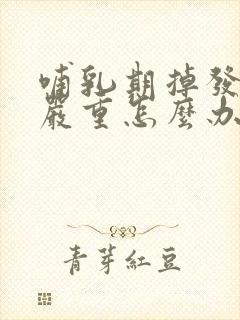 哺乳期掉發
嚴重怎麼办
青芽紅豆